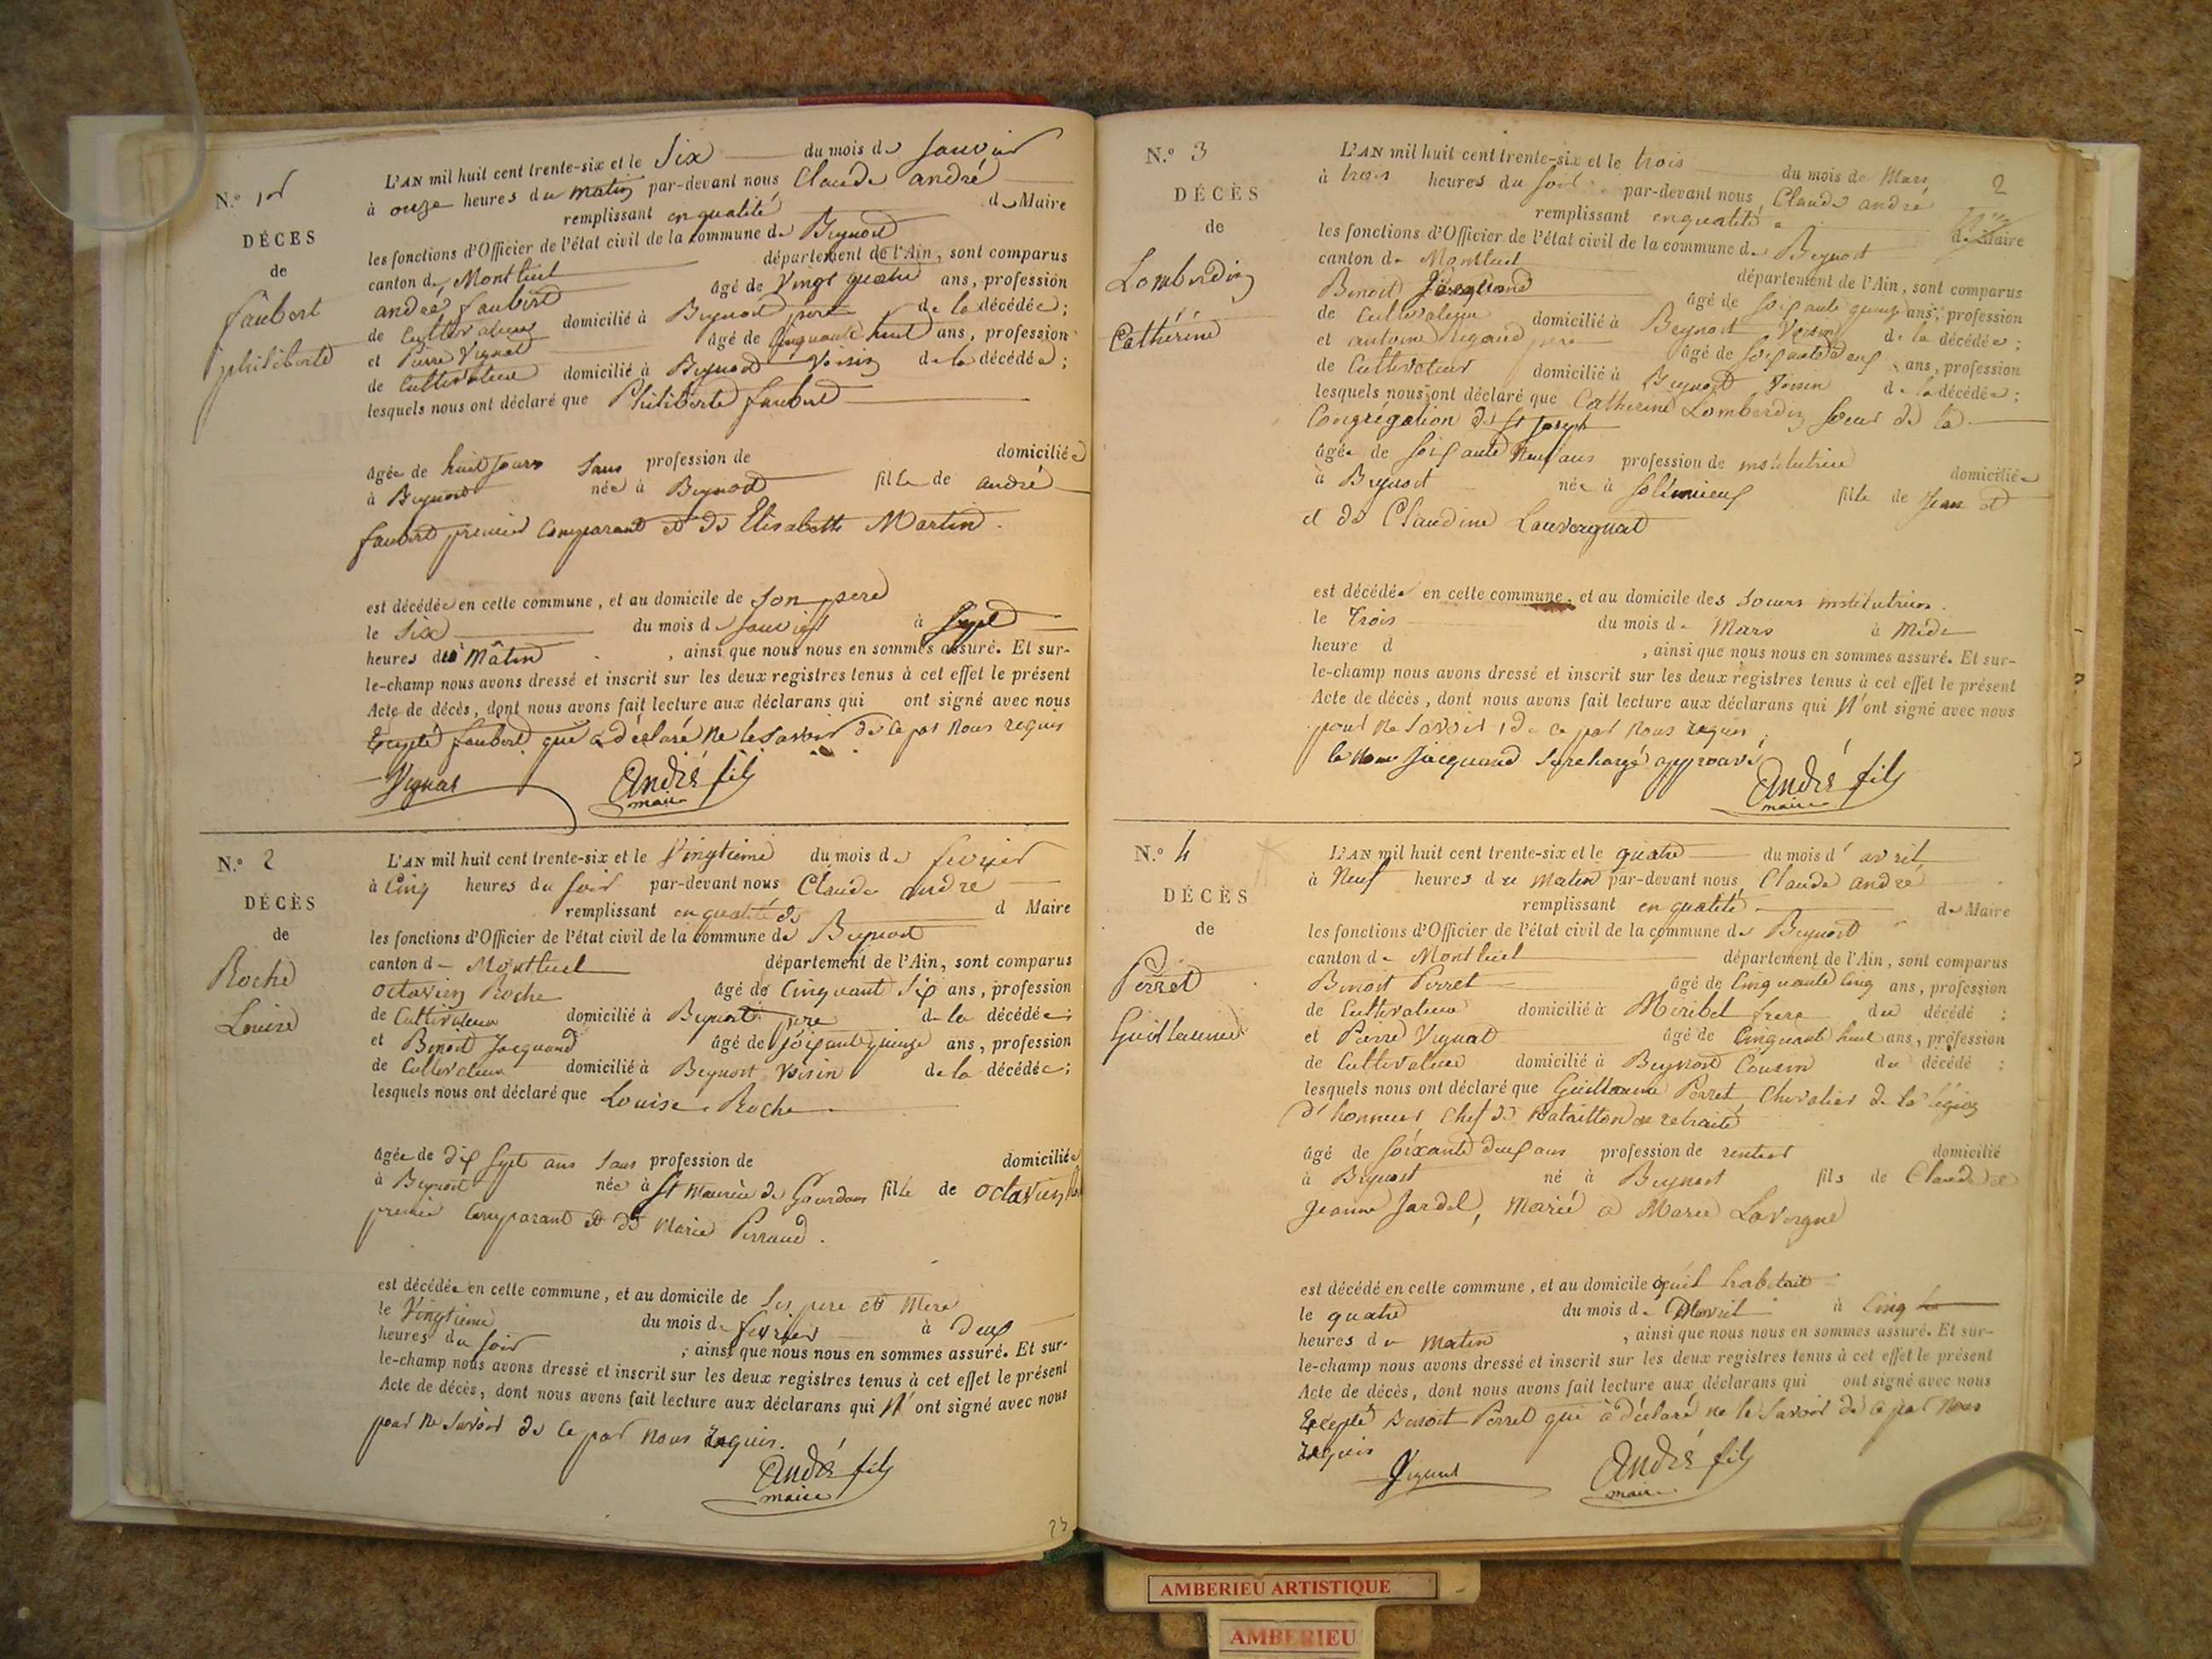 N.º 1er
DÉCÈS
de
faubert
philiberte
L'AN mil huit cent trente-six et le Six du mois de Janvier
à onze heures du matin par-devant nous Claude andré
remplissant en qualité de Maire
les fonctions d'Officier de l'état civil de la commune de Beynost
canton de Montluel département de l'Ain, sont comparus
andré faubert âgé de Vingt quatre ans, profession
de Cultivateur domicilié à Beynost pere de la décédée;
et Pierre Vignat âgé de Cinquante huit ans, profession
de Cultivateur domicilié à Beynost Voisin de la décédée;
lesquels nous ont déclaré que Philiberte faubert
âgée de huit Jours Sans profession de domiciliée
à Beynost née à Beynost fille de andré
faubert premier Comparant et de Elisabeth Martin.
est décédée en cette commune, et au domicile de Son pere
le Six du mois de Janvier à Sept
heures du Mâtin, ainsi que nous nous en sommes assuré. Et sur-
le-champ nous avons dressé et inscrit sur les deux registres tenus à cet effet le présent
Acte de décès, dont nous avons fait lecture aux déclarans qui ont signé avec nous
Excepté faubert qui a déclaré ne le Savoir de ce par Nous requis
Vignat André fils
maire
N.º 2
DÉCÈS
de
Roche
Louise
L'AN mil huit cent trente-six et le Vingtieme du mois de fevrier
à Cinq heures du Soir par-devant nous Claude andré
remplissant en qualité de d Maire
les fonctions d'Officier de l'état civil de la commune de Beynost
canton de Montluel département de l'Ain, sont comparus
octavien Roche âgé de Cinquant Six ans, profession
de Cultivateur domicilié à Beynost pere de la décédée;
et Benoit Jacquand âgé de Soixante quinze ans, profession
de Cultivateur domicilié à Beynost Voisin de la décédée;
lesquels nous ont déclaré que Louise Roche
âgée de dix Sept ans Sans profession de domiciliée
à Beynost née à St Maurice de Gourdans fille de octavien
premier Comparant et de Marie Perraud.
est décédée en cette commune, et au domicile de Ses pere et Mere
le Vingtieme du mois de fevrier à deux
heures du Soir, ainsi que nous nous en sommes assuré. Et sur-
le-champ nous avons dressé et inscrit sur les deux registres tenus à cet effet le présent
Acte de décès, dont nous avons fait lecture aux déclarans qui N'ont signé avec nous
pour ne Savoir de ce par nous Requis.
André fils
maire
N.º 3
DÉCÈS
de
Lomberdin
Cathérine
2
L'AN mil huit cent trente-six et le trois du mois de Mars
à trois heures du Soir par-devant nous Claude andré
remplissant en qualité de Maire
les fonctions d'Officier de l'état civil de la commune de Beynost
canton de Montluel département de l'Ain, sont comparus
Benoit Jacquand âgé de Soixante quinze ans, profession
de Cultivateur domicilié à Beynost Voisin de la décédée;
et antoine Rigaud pere âgé de Soixante deux ans, profession
de Cultivateur domicilié à Beynost Voisin de la décédée;
lesquels nous ont déclaré que Catherine Lomberdin Soeur de la
Congrégation de St Joseph
âgée de Soixante Neuf ans profession de institutrice domiciliée
à Beynost née à Solimieux fille de Jean et
et de Claudine Lauvergnat
est décédée en cette commune, et au domicile des Soeurs institutrices.
le Trois du mois de Mars à Midi
heure d, ainsi que nous nous en sommes assuré. Et sur-
le-champ nous avons dressé et inscrit sur les deux registres tenus à cet effet le présent
Acte de décès, dont nous avons fait lecture aux déclarans qui N'ont signé avec nous
pour ne Savoir, de ce par nous requis.
le nom Jacquand Surchargé approuvé
André fils
maire
N.º 4
DÉCÈS
de
Perret
Guillaume
L'AN mil huit cent trente-six et le quatre du mois d'avril
à Neuf heures du Matin par-devant nous Claude andré
remplissant en qualité de Maire
les fonctions d'Officier de l'état civil de la commune de Beynost
canton de Montluel département de l'Ain, sont comparus
Benoit Perret âgé de Cinquante Cinq ans, profession
de Cultivateur domicilié à Miribel frere du décédé;
et Pierre Vignat âgé de Cinquante huit ans, profession
de Cultivateur domicilié à Beynost Cousin du décédé;
lesquels nous ont déclaré que Guillaume Perret Chevalier de la légion
d'honneur, Chef de Bataillon en retraite
âgé de Soixante deux ans profession de rentier domicilié
à Beynost né à Beynost fils de Claude et
Jeanne Jardel, Marié a Marie Lavergne
est décédé en cette commune, et au domicile qu'il habitait
le quatre du mois d'avril à Cinq
heures du matin, ainsi que nous nous en sommes assuré. Et sur-
le-champ nous avons dressé et inscrit sur les deux registres tenus à cet effet le présent
Acte de décès, dont nous avons fait lecture aux déclarans qui ont signé avec nous
Excepté Benoit Perret qui à déclaré ne le Savoir de ce par Nous
requis
Vignat André fils
maire
AMBERIEU ARTISTIQUE
AMBERIEU